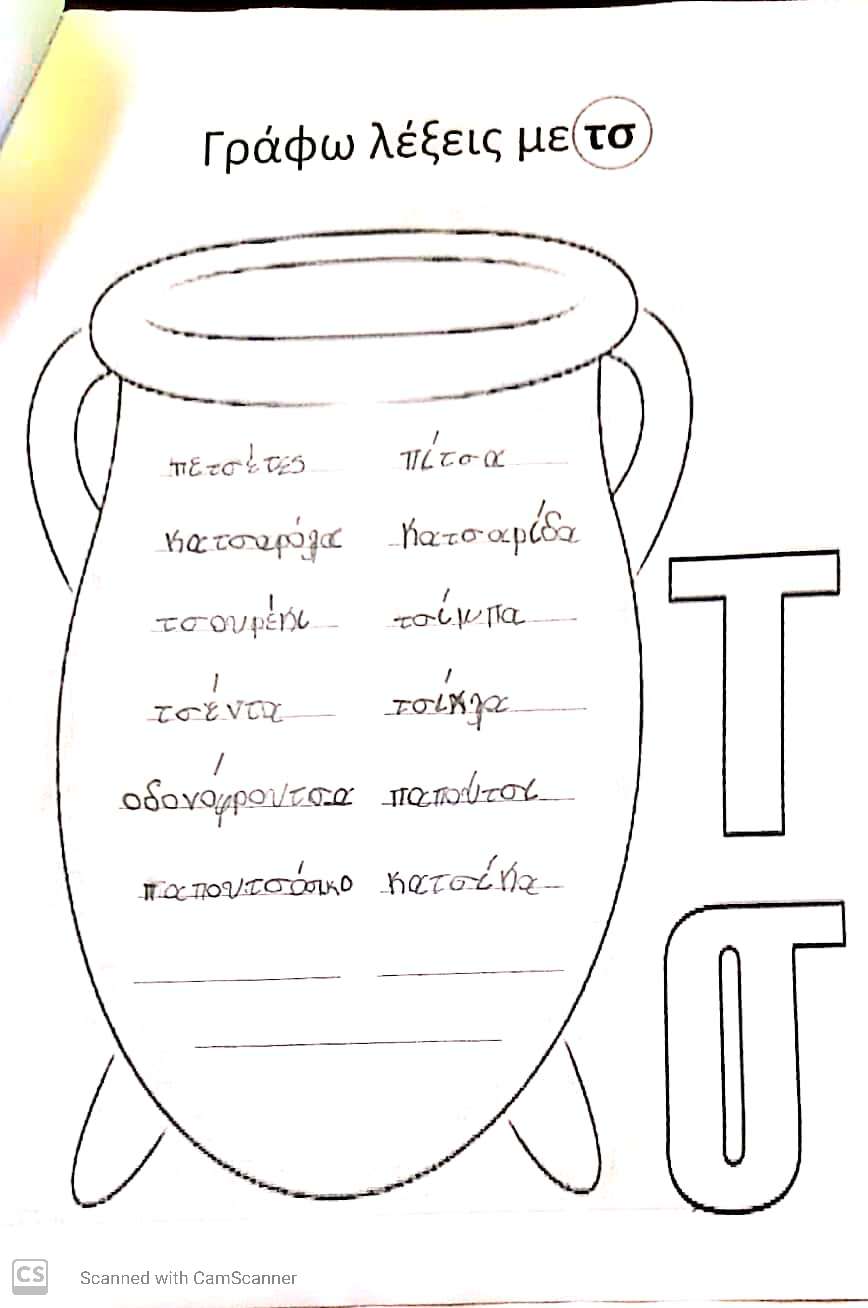 Γράφω λέξεις με τσ
πετσέτες πίτσα
κατσαρόλα κατσαρίδα
τσουρέκι τσίμπα
τσέντα τσίκλα
οδονόφρουτσα παπούτσι
παπουτσάσικο κατσίκα
Τ
σ
CS Scanned with CamScanner